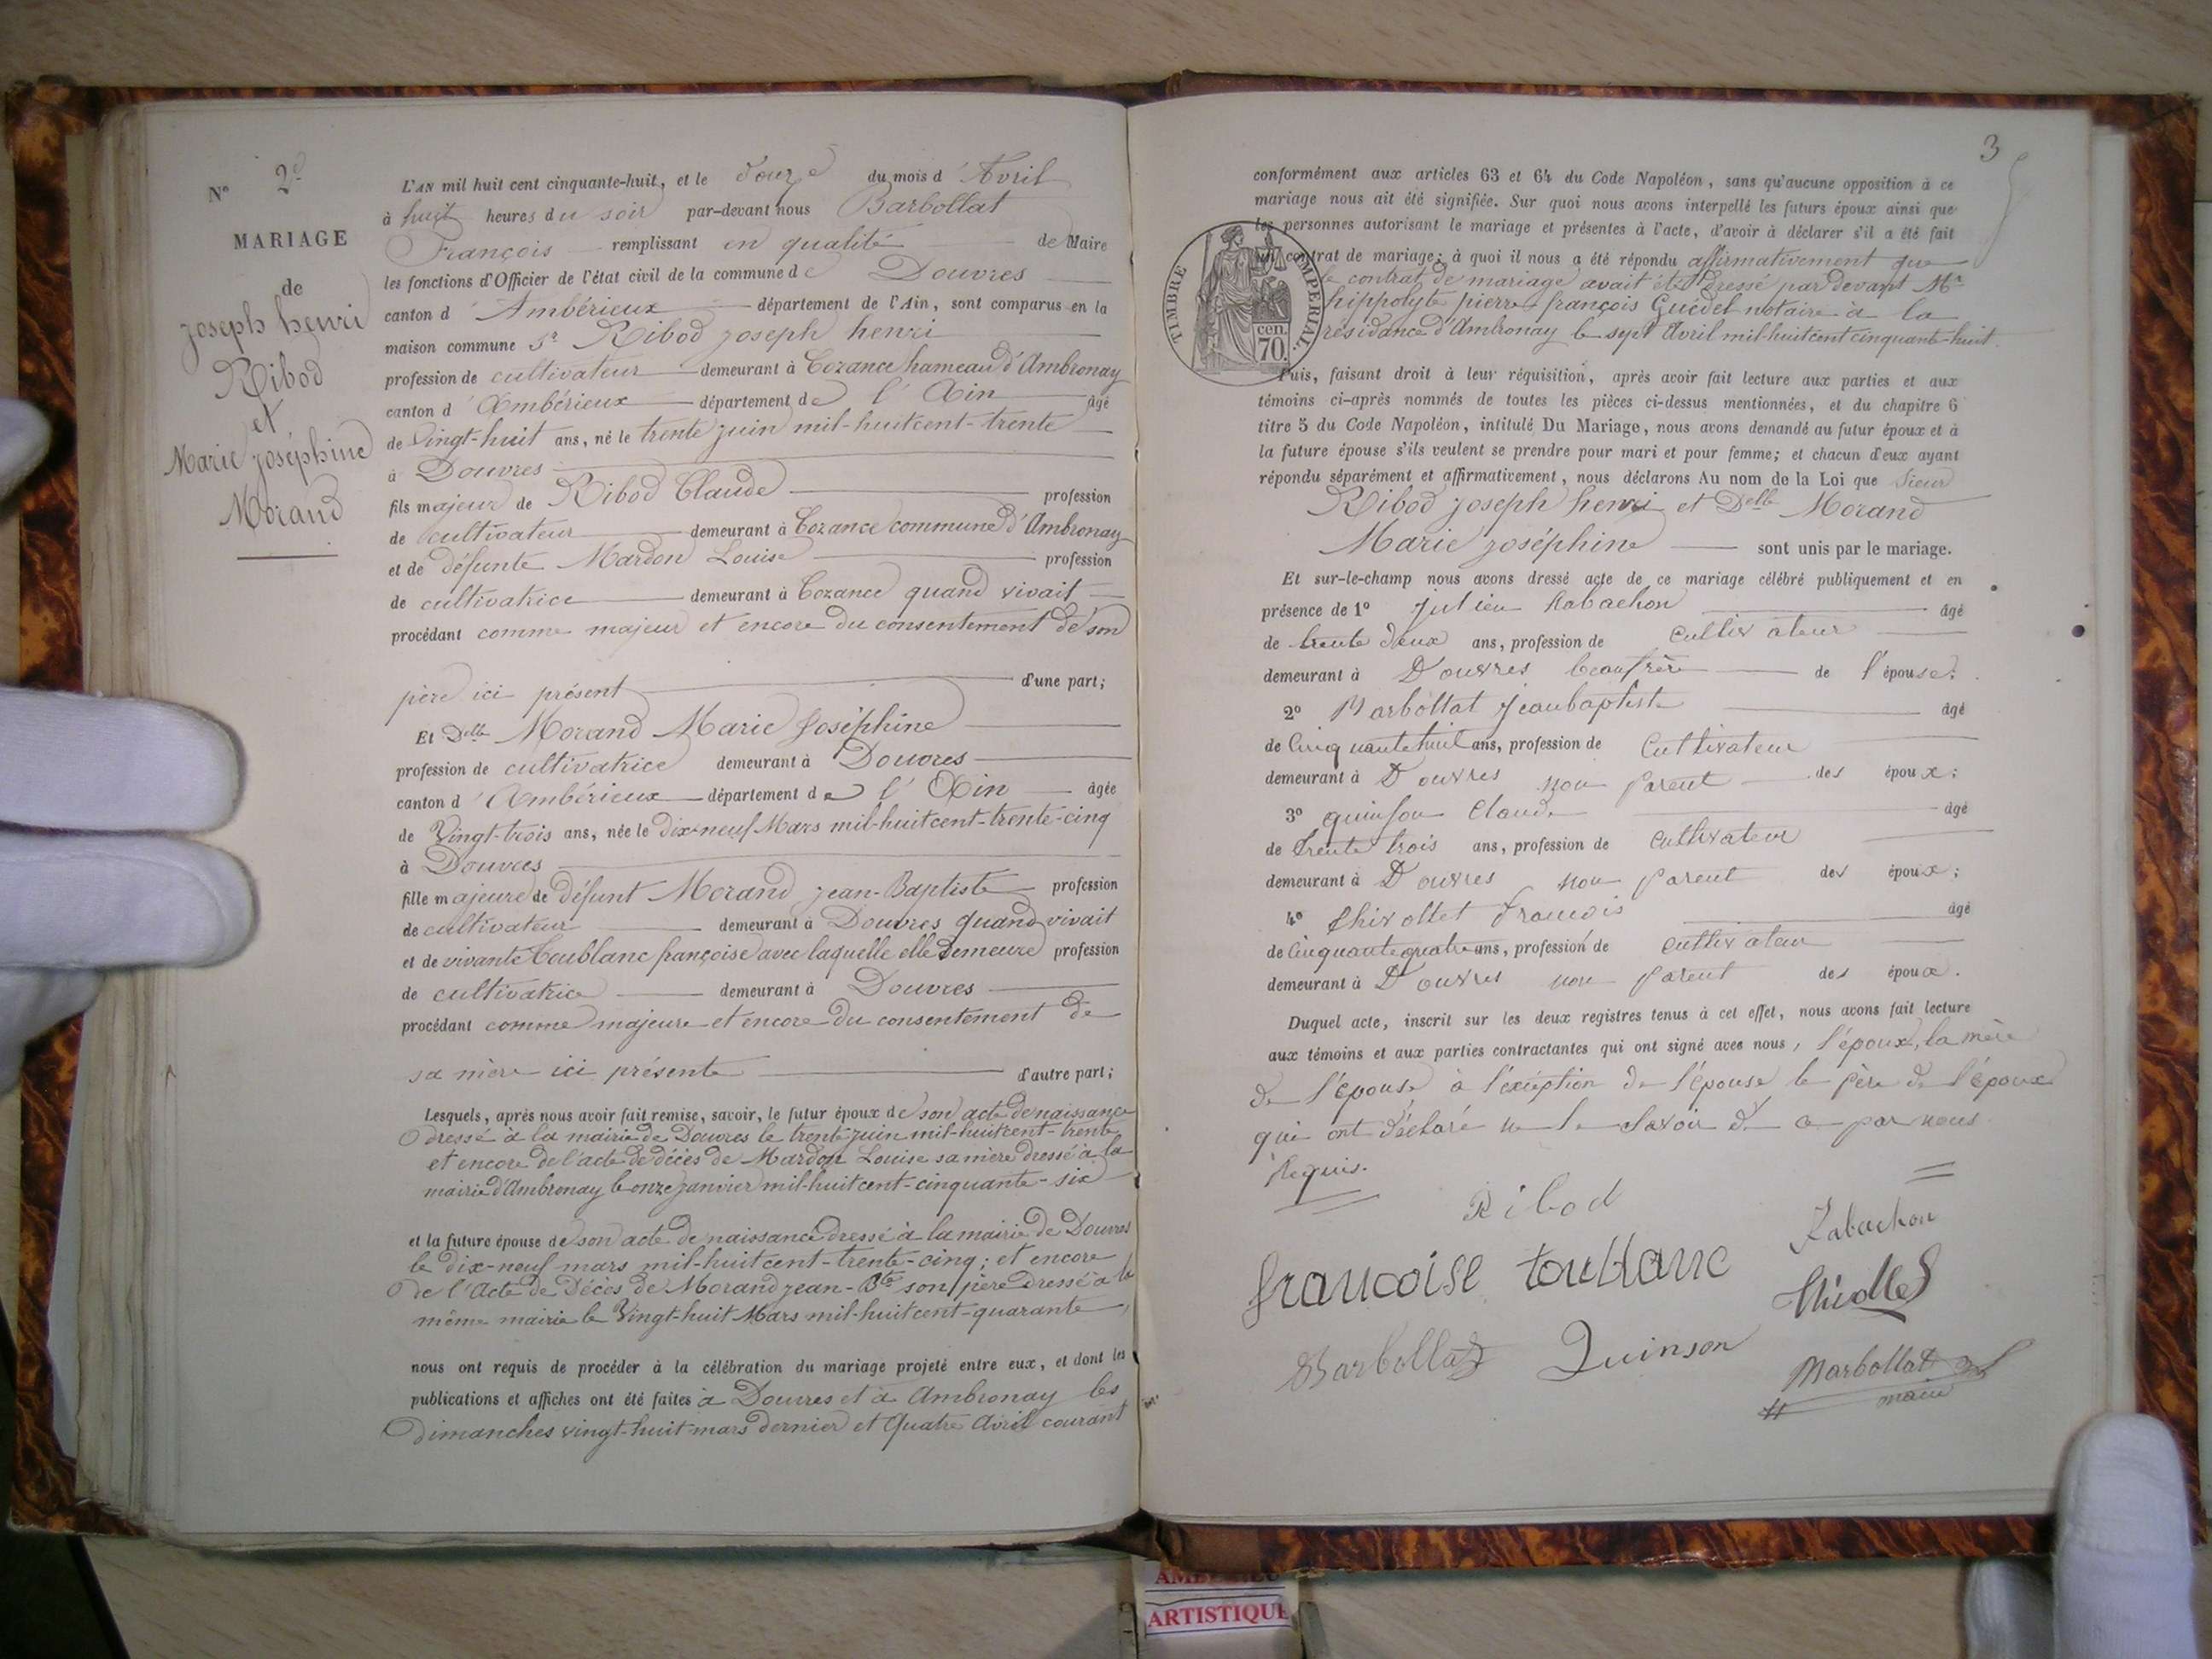 N° 2d
MARIAGE
de
joseph henri
Ribod
et
Marie joséphine
Morand
L'AN mil huit cent cinquante-huit, et le douze du mois d'Avril
à huit heures du soir par-devant nous Barbollat
François remplissant en qualité de Maire
les fonctions d'Officier de l'état civil de la commune de Douvres
canton d'Ambérieux département de l'Ain, sont comparus en la
maison commune Sr Ribod joseph henri
profession de cultivateur demeurant à Cozance hameau d'Ambronay
canton d'Ambérieux département de l'Ain âgé
de Vingt-huit ans, né le trente juin mil-huitcent-trente
à Douvres
fils majeur de Ribod Claude profession
de cultivateur demeurant à Cozance commune d'Ambronay
et de défunte Mardon Louise profession
de cultivatrice demeurant à Cozance quand vivait
procédant comme majeur et encore du consentement de son
père ici présent d'une part;
Et Delle Morand Marie Joséphine
profession de cultivatrice demeurant à Douvres
canton d'Ambérieux département de l'Ain âgée
de Vingt-trois ans, née le dix-neuf Mars mil-huitcent-trente-cinq
à Douvres
fille majeure de défunt Morand jean-Baptiste profession
de cultivateur demeurant à Douvres quand vivait
et de vivante Toublanc françoise avec laquelle elle demeure profession
de cultivatrice demeurant à Douvres
procédant comme majeure et encore du consentement de
sa mère ici présente d'autre part;
Lesquels, après nous avoir fait remise, savoir, le futur époux de son acte de naissance
dressé à la mairie de Douvres le trente juin mil-huitcent-trente
et encore de l'acte de décès de Mardon Louise sa mère dressé à la
mairie d'Ambronay le onze janvier mil-huitcent-cinquante-six
et la future épouse de son acte de naissance dressé à la mairie de Douvres
le dix-neuf mars mil-huitcent-trente-cinq; et encore
de l'Acte de Décès de Morand jean-Bte son père dressé à la
même mairie le Vingt-huit Mars mil-huitcent-quarante,
nous ont requis de procéder à la célébration du mariage projeté entre eux, et dont les
publications et affiches ont été faites à Douvres et à Ambronay les
dimanches vingt-huit mars dernier et Quatre Avril courant
3
conformément aux articles 63 et 64 du Code Napoléon, sans qu'aucune opposition à ce
mariage nous ait été signifiée. Sur quoi nous avons interpellé les futurs époux ainsi que
les personnes autorisant le mariage et présentes à l'acte, d'avoir à déclarer s'il a été fait
un contrat de mariage; à quoi il nous a été répondu affirmativement que
le contrat de mariage avait été dressé par devant Me
hippolyte pierre françois Guédel notaire à la
résidance d'Ambronay le sept Avril mil-huitcent cinquante-huit.
TIMBRE IMPERIAL.
cen.
70.
Puis, faisant droit à leur réquisition, après avoir fait lecture aux parties et aux
témoins ci-après nommés de toutes les pièces ci-dessus mentionnées, et du chapitre 6
titre 5 du Code Napoléon, intitulé Du Mariage, nous avons demandé au futur époux et à
la future épouse s'ils veulent se prendre pour mari et pour femme; et chacun d'eux ayant
répondu séparément et affirmativement, nous déclarons Au nom de la Loi que Sieur
Ribod joseph henri et Delle Morand
Marie joséphine sont unis par le mariage.
Et sur-le-champ nous avons dressé acte de ce mariage célébré publiquement et en
présence de 1° Julien Rabachon âgé
de trente deux ans, profession de cultivateur
demeurant à Douvres beaufrère de l'épouse;
2° Barbollat Jeanbaptiste âgé
de Cinquante huit ans, profession de Cultivateur
demeurant à Douvres non parent des époux;
3° quinson Claude âgé
de trente trois ans, profession de cultivateur
demeurant à Douvres non parent des époux;
4° Thivollet francois âgé
de Cinquante quatre ans, profession de cultivateur
demeurant à Douvres non parent des époux.
Duquel acte, inscrit sur les deux registres tenus à cet effet, nous avons fait lecture
aux témoins et aux parties contractantes qui ont signé avec nous, l'époux, la mère
de l'épouse à l'exéption de l'épouse le père de l'époux
qui ont déclaré ne le Savoir de ce par nous
Requis.
Ribod
Rabachon
francoise toublanc
Thivollet
Barbollat
Quinson
Barbollat
maire
ARTISTIQUE